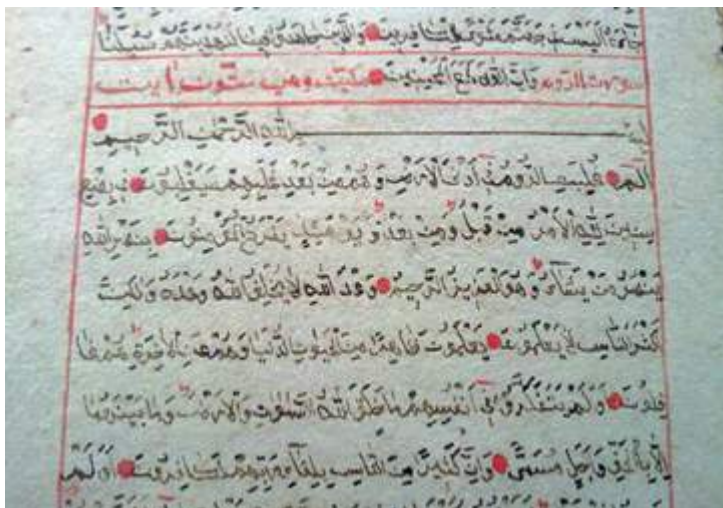 جآءه أليس في جهنم مثوى للكافرين والذين جاهدوا فينا لنهدينهم سبلنا
سورت الروم وإن الله لمع المحسنين مكية وهي ستون آيت
بسم الله الرحمن الرحيم
الم غلبت الروم في أدنى الأرض وهم من بعد غلبهم سيغلبون في بضع
سنين لله الأمر من قبل ومن بعد ويومئذ يفرح المؤمنون بنصر الله
ينصر من يشآء وهو العزيز الرحيم وعد الله لا يخلف الله وعده ولكن
أكثر الناس لا يعلمون يعلمون ظاهرا من الحيوة الدنيا وهم عن الآخرة هم غا
فلون أولم يتفكروا في أنفسهم ما خلق الله السموات والأرض وما بينهما
إلا بالحق وأجل مسمى وإن كثيرا من الناس بلقآء ربهم لكافرون أولم